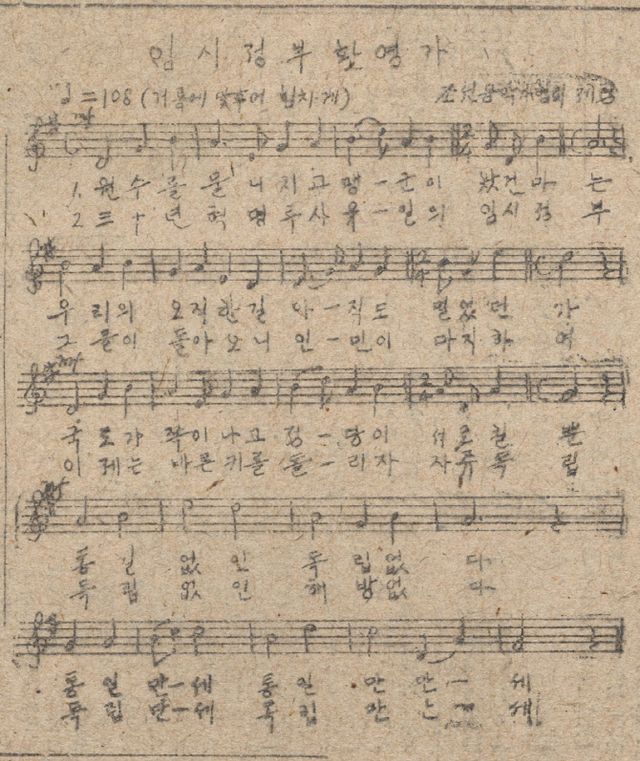 임시정부환영가
♩=108 (거름에 맞추어 힘차게)
조선음악가협회 제공
1. 원수를 물니치고 맹–군이 왔건마는
2. 三十년 혁명투사 유–일의 임시정부
우리의 오직한길 아–직도 멀었던가
그들이 돌아오니 인–민이 마지하여
국토가 작이나고 정–당이 서로할뿐
이제는 바른키를 돌–리자 자주독립
통일 없인 독립없다
독립 없인 해방없다
통일 만–세 통일 만만–세
독립 만–세 독립 만